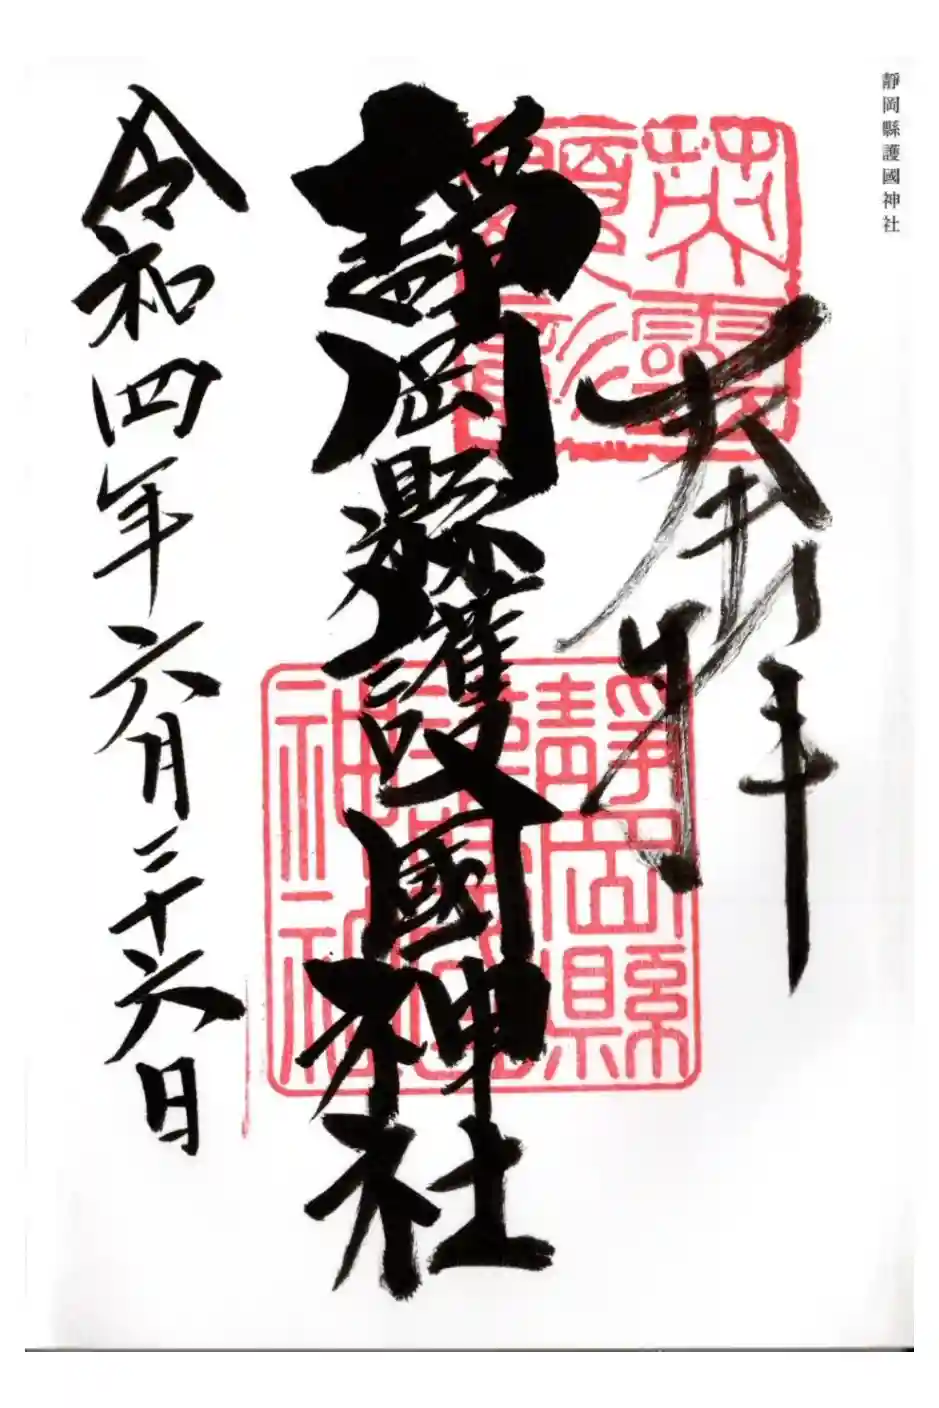 靜岡縣護國神社
奉拝
靜岡縣護國神社
令和四年六月二十六日
靜岡縣護國神社